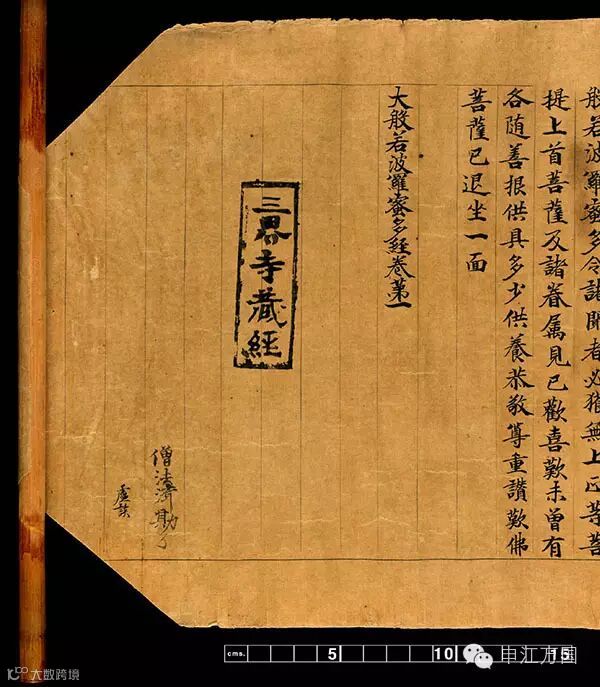 般若波羅蜜多令諸聞者必獲無上正等菩
提上首菩薩及諸眷属見已歡喜歎未曾有
各随善根供具多少供養恭敬尊重讃歎佛
菩薩已退坐一面
大般若波羅蜜多經卷第一
三界寺藏經
僧法濟勘了
cms. 5 10 15
申江万国
大数跨境